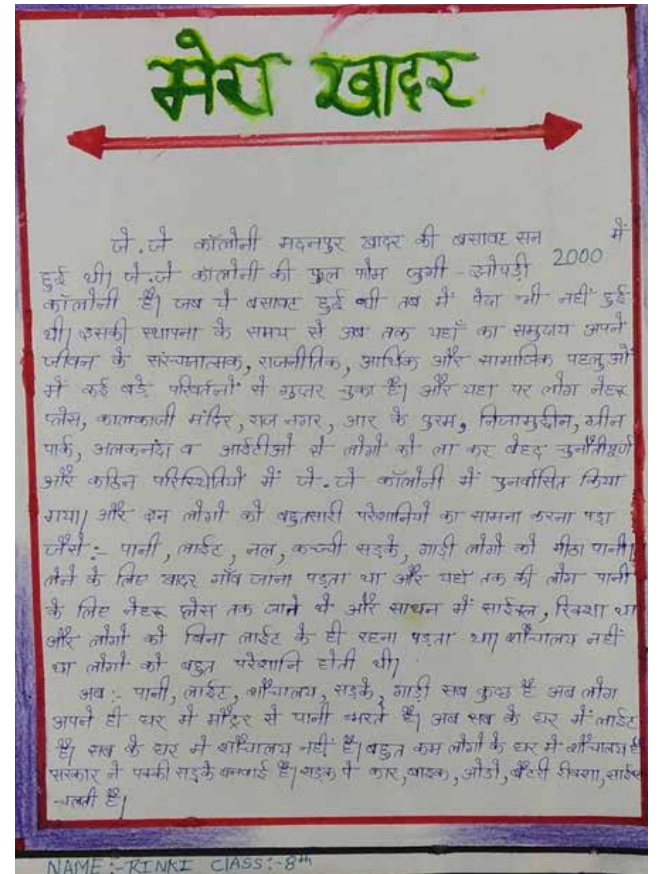 मेरा खादर
जे.जे कॉलोनी मदनपुर खादर की बसावट सन 2000 में
हुई थी| जे.जे कॉलोनी की फुल फोम जुगी-झोपड़ी
कॉलोनी है| जब ये बसावट हुई थी तब में पैदा भी नहीं हुई
थी| इसकी स्थापना के समय से अब तक यहाँ का समुदाय अपने
जीवन के संरचनात्मक, राजनीतिक, आर्थिक और सामाजिक पहलुओं
में कई बड़े परिवर्तनों से गुजर चुका है| और यहा पर लोग नेहरू
प्लेस, कालकाजी मंदिर, राज नगर, आर के पुरम, निजामुद्दीन, ग्रीन
पार्क, अलकनंदा व आईटीओ से लोगों को ला कर बेहद चुनौतीपूर्ण
और कठिन परिस्थितियों में जे.जे कॉलोनी में पुनर्वासित किया
गया| और इन लोगों को बहुतसारी परेशानियों का सामना करना पड़ा
जैसे:- पानी, लाईट, नल, कच्ची सड़के, गाड़ी लोगों को मीठा पानी|
लेने के लिए खादर गाँव जाना पड़ता था और यहाँ तक की लोग पानी
के लिए नेहरू प्लेस तक जाते थे और साधन में साईकल, रिक्शा था
और लोगों को बिना लाईट के ही रहना पड़ता था| शौचालय नहीं
था लोगों को बहुत परेशानि होती थी|
अब:- पानी, लाईट, शौचालय, सड़के, गाड़ी सब कुछ है अब लोग
अपने ही घर में मोटर से पानी भरते है| अब सब के घर में लाईट
है| सब के घर में शौचालय नहीं है| बहुत कम लोगों के घर में शौचालय है
सरकार ने पक्की सड़के बनवाई है| सड़क पे कार, बाइक, ओटो, बैटरी रीक्शा, साईकल
चलती है|
NAME:-RINKI CLASS:-8th